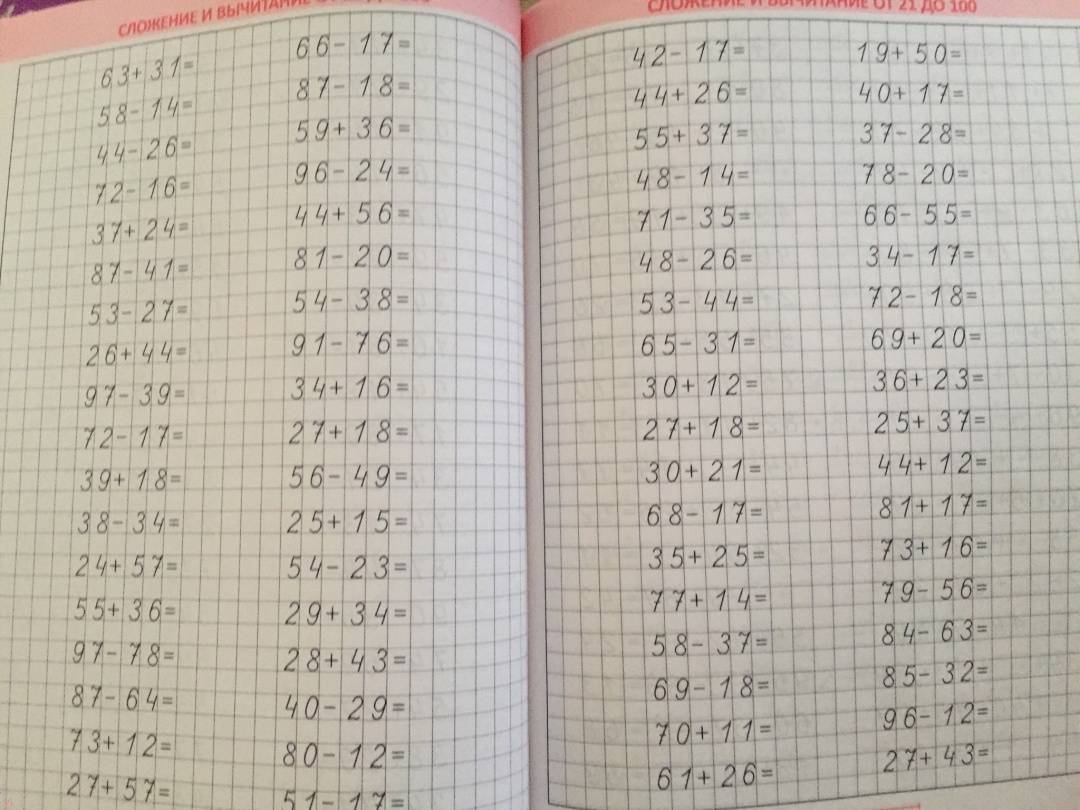 СЛОЖЕНИЕ И ВЫЧИТАНИЕ
63+31=
58-14=
44-26=
72-16=
37+24=
87-41=
53-27=
26+44=
97-39=
72-17=
39+18=
38-34=
24+57=
55+36=
97-78=
87-64=
73+12=
27+57=
66-17=
87-18=
59+36=
96-24=
44+56=
81-20=
54-38=
91-76=
34+16=
27+18=
56-49=
25+15=
54-23=
29+34=
28+43=
40-29=
80-12=
51-17=
СЛОЖЕНИЕ И ВЫЧИТАНИЕ ОТ 21 ДО 100
42-17=
44+26=
55+37=
48-14=
71-35=
48-26=
53-44=
65-31=
30+12=
27+18=
30+21=
68-17=
35+25=
77+14=
58-37=
69-18=
70+11=
61+26=
19+50=
40+17=
37-28=
78-20=
66-55=
34-17=
72-18=
69+20=
36+23=
25+37=
44+12=
81+17=
73+16=
79-56=
84-63=
85-32=
96-12=
27+43=